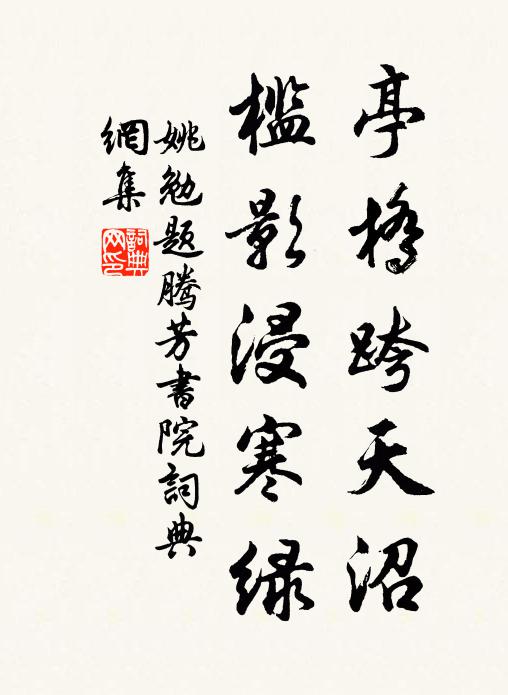 亭橋跨天沼
檻影浸寒绿
姚勉题騰芳書院詞典
網集
詞典網印